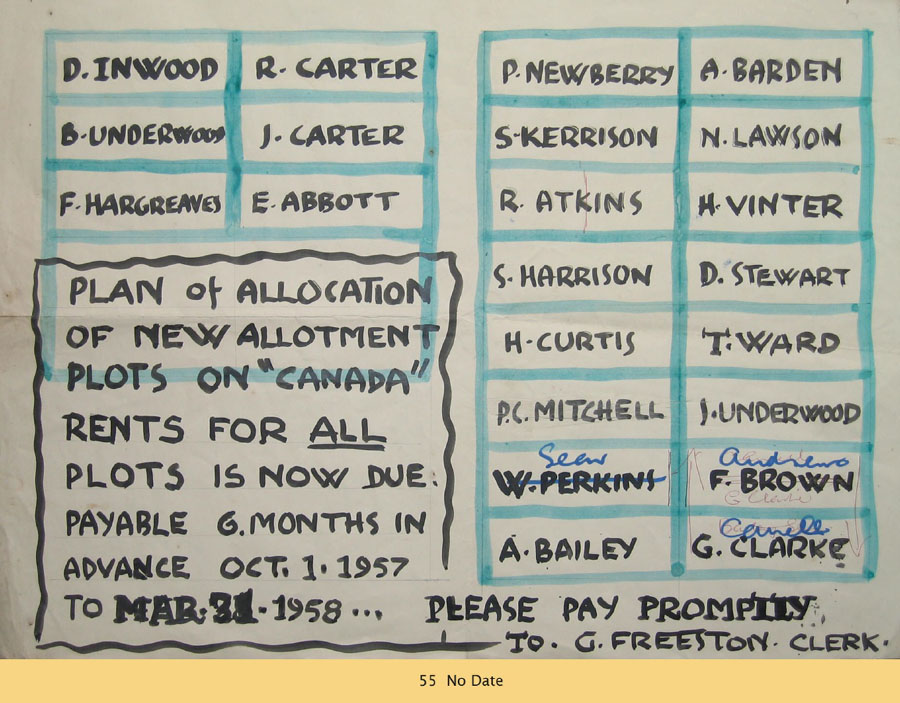 D. INWOOD R. CARTER
B. UNDERWOOD J. CARTER
F. HARGREAVES E. ABBOTT
PLAN of ALLOCATION
OF NEW ALLOTMENT
PLOTS ON "CANADA"
RENTS FOR ALL
PLOTS IS NOW DUE.
PAYABLE 6. MONTHS IN
ADVANCE OCT. 1. 1957
TO MAR. 31. 1958... PLEASE PAY PROMPTLY
TO. G. FREESTON. CLERK.
P. NEWBERRY A. BARDEN
S. KERRISON N. LAWSON
R. ATKINS H. VINTER
S. HARRISON D. STEWART
H. CURTIS T. WARD
P.C. MITCHELL J. UNDERWOOD
Andrews
W. PERKINS F. BROWN
A. BAILEY G. CLARKE
55 No Date